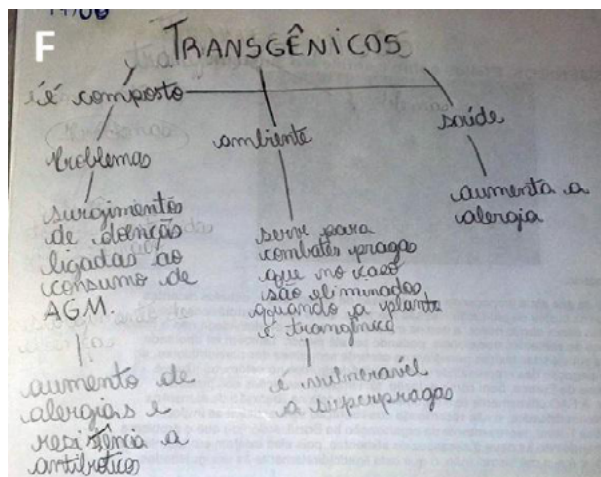 F
TRANSGÊNICOS
é composto
Problemas
surgimentos
de doenças
ligadas ao
consumo de
AGM.
aumento de
alergias e
resistência a
antibióticos
ambiente
serve para
combates pragas
que no caso
são eliminados
quando a planta
é transgênica
é vulneravíel
a superpragas
saúde
aumenta a
alergia